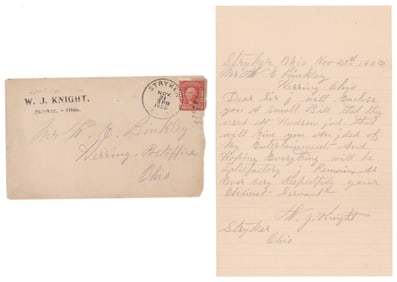 W. J. KNIGHT.
Stryker, - Ohio.
STRYKER
NOV
21
PM
Mr W. E. Binkley
Herring Postoffice
Ohio
Stryker Ohio Nov 21st 1906
Mr W E Binkley
Herring Ohio
Dear Sir I will Enclose
you A Small Bill that they
used at Hudson Ind that
will give you An Idea of
My Entertainment And
Hoping Everything will be
Satisfactory I Remain As
Ever very Respectfy your
Obedient Servant
W. J. Knight
Stryker
Ohio